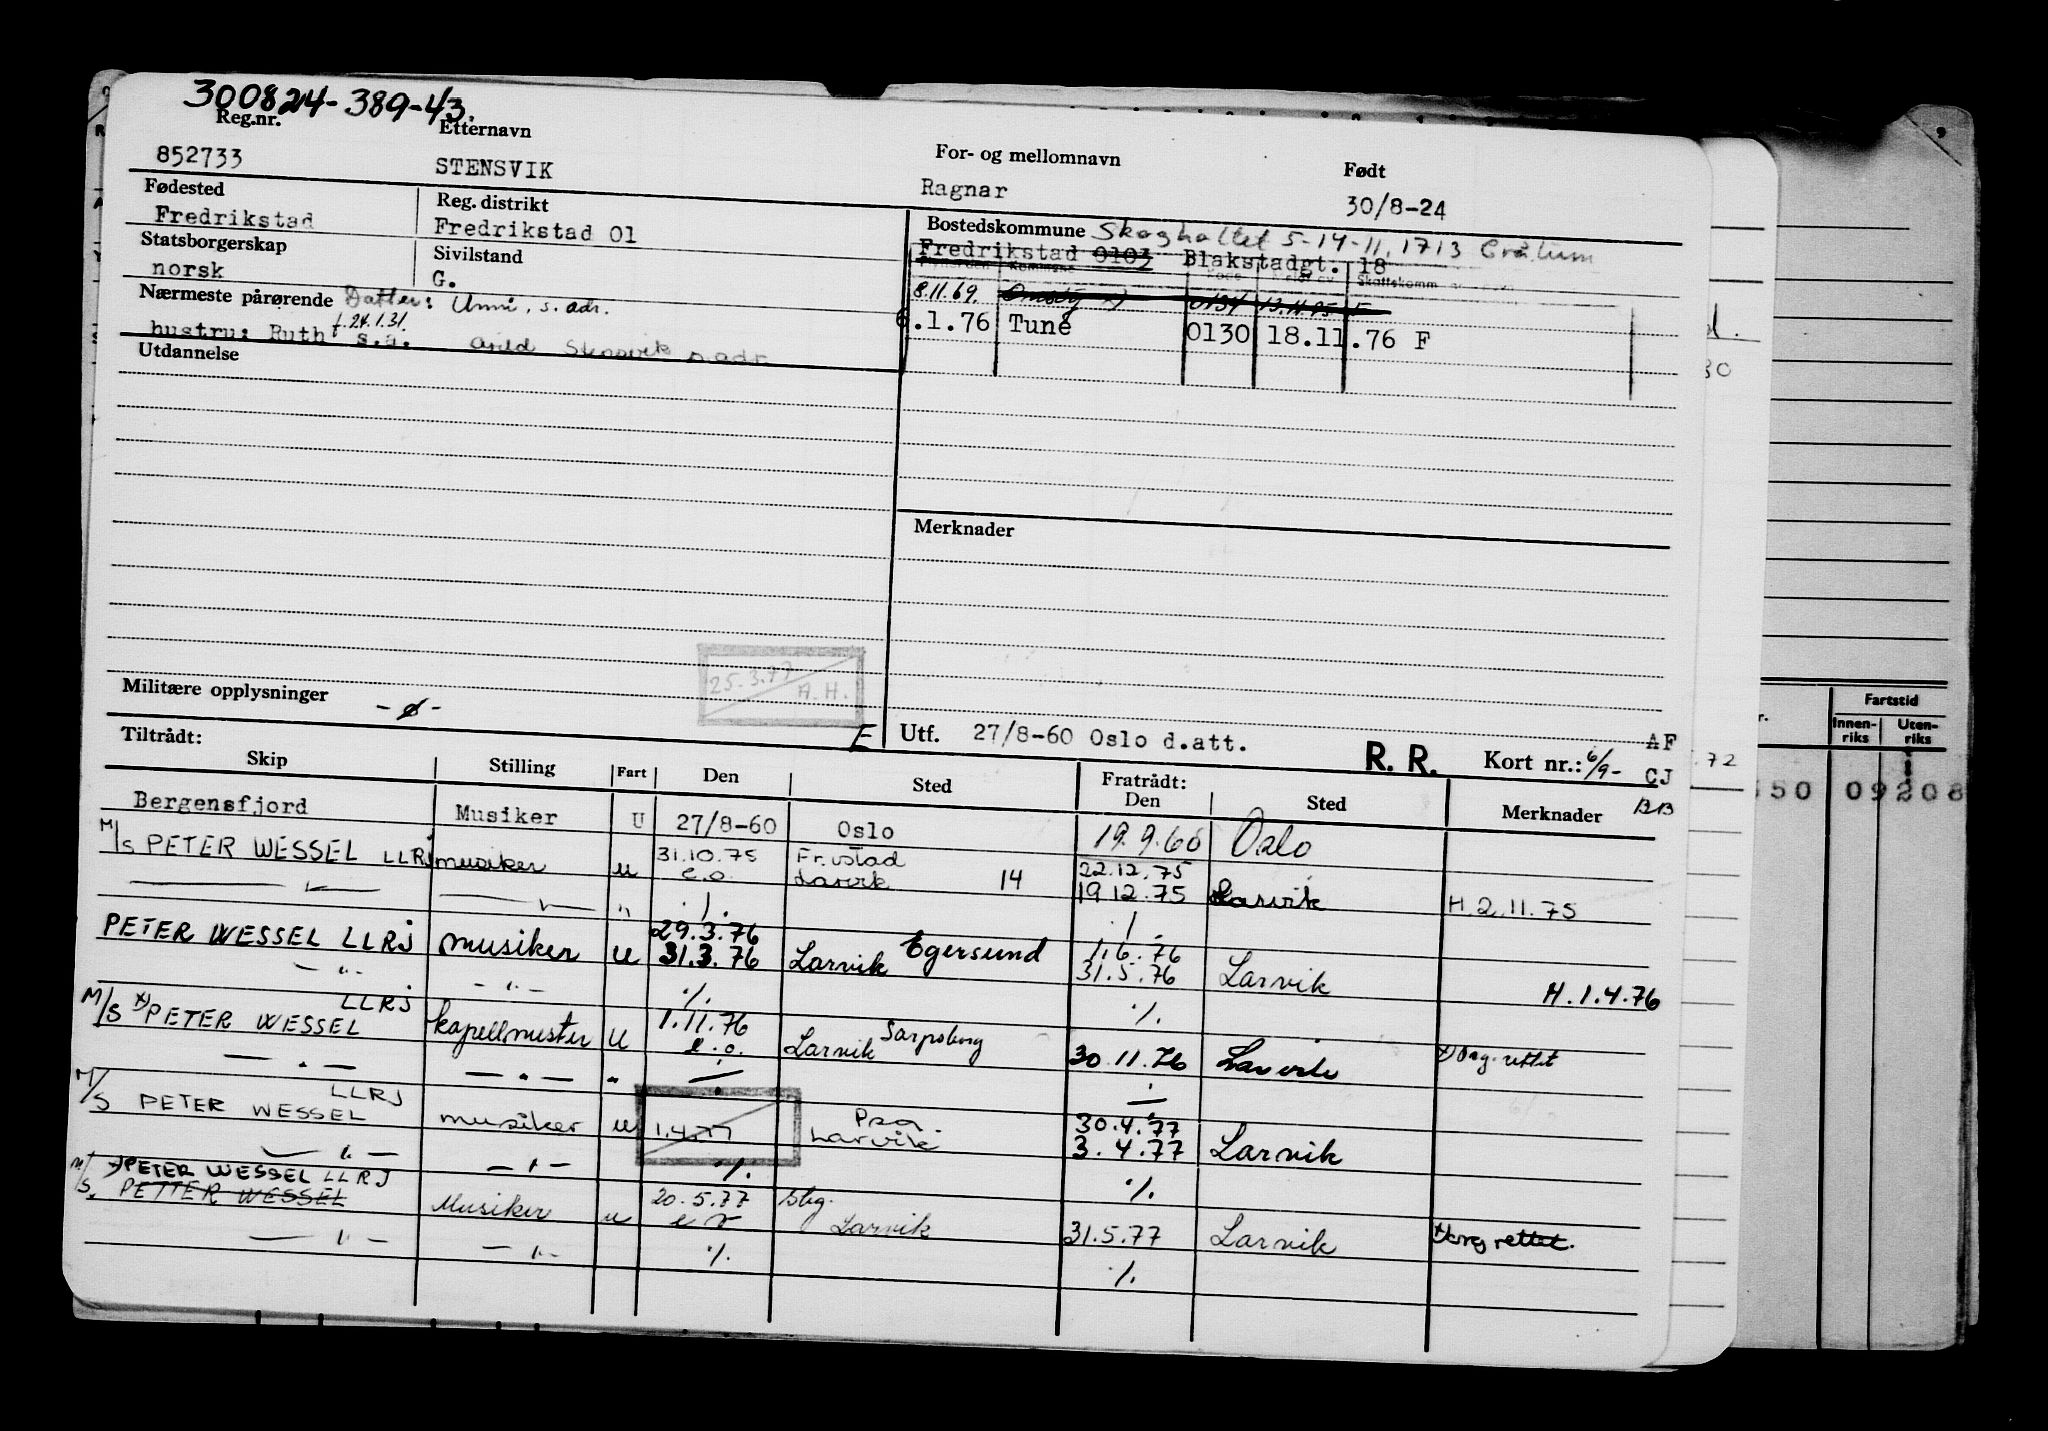 300824-389-43.
Reg.nr. Etternavn For- og mellomnavn Født
852733 STENSVIK Ragnar 30/8-24
Fødested Reg. distrikt Bostedskommune Skogholtet 5-14-11, 1713 Grålum
Fredrikstad Fredrikstad 01 Fredrikstad 0103 Blakstadgt. 18
Statsborgerskap Sivilstand
norsk G. 8.11.69. Onsøy 0134 13.11.75 F
Nærmeste pårørende Datter: Unni, s. adr.
f. 24.1.31.
hustru: Ruth s.a. Arild Stensvik s. adr. 6.1.76 Tune 0130 18.11.76 F
Utdannelse
Merknader
25.3.77 A.H.
Militære opplysninger
E Utf. 27/8-60 Oslo d.att. R. R. Kort nr.: 6/9- AF
CJ
BB
Tiltrådt: Fratrådt:
Skip Stilling Fart Den Sted Den Sted Merknader
Bergensfjord Musiker U 27/8-60 Oslo 19.9.60 Oslo
M/S PETER WESSEL LLRJ musiker u 31.10.75 Fr.stad 22.12.75
e.o. Larvik 14 19.12.75 Larvik H.2.11.75
— " — — " — " ./. ./.
PETER WESSEL LLRJ musiker u 29.3.76 Egersund 1.6.76
31.3.76 Larvik 31.5.76 Larvik H.1.4.76
— " — — " — ./. ./.
LLRJ 1.11.76 Sarpsborg
M/S x) PETER WESSEL kapellmester U e.o. Larvik 30.11.76 Larvik x) Org. rettet
— " — — " — " ./. ./.
LLRJ 30.4.77
M/S PETER WESSEL musiker u 1.4.77 Larvik 3.4.77 Larvik
— " — — " — ./. ./.
x) PETER WESSEL LLRJ
M/S. PETTER WESSEL Musiker u 20.5.77 Sbg.
Larvik 31.5.77 Larvik x) Org rettet.
— " — — " — ./. ./.
72
Fartstid
Innen-riks Uten-riks
550 09 208